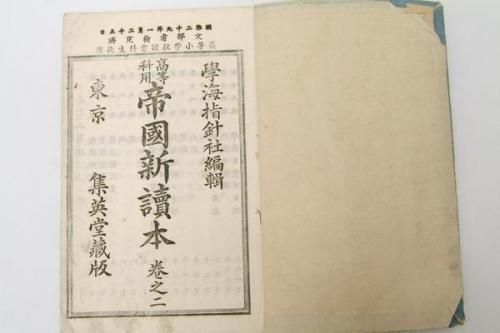 明治二十九年一月二十五日
文部省檢定濟
高等小學校讀書科生徒用
學海指針社編輯
高等科用
帝國新讀本 卷之二
東京 集英堂藏版